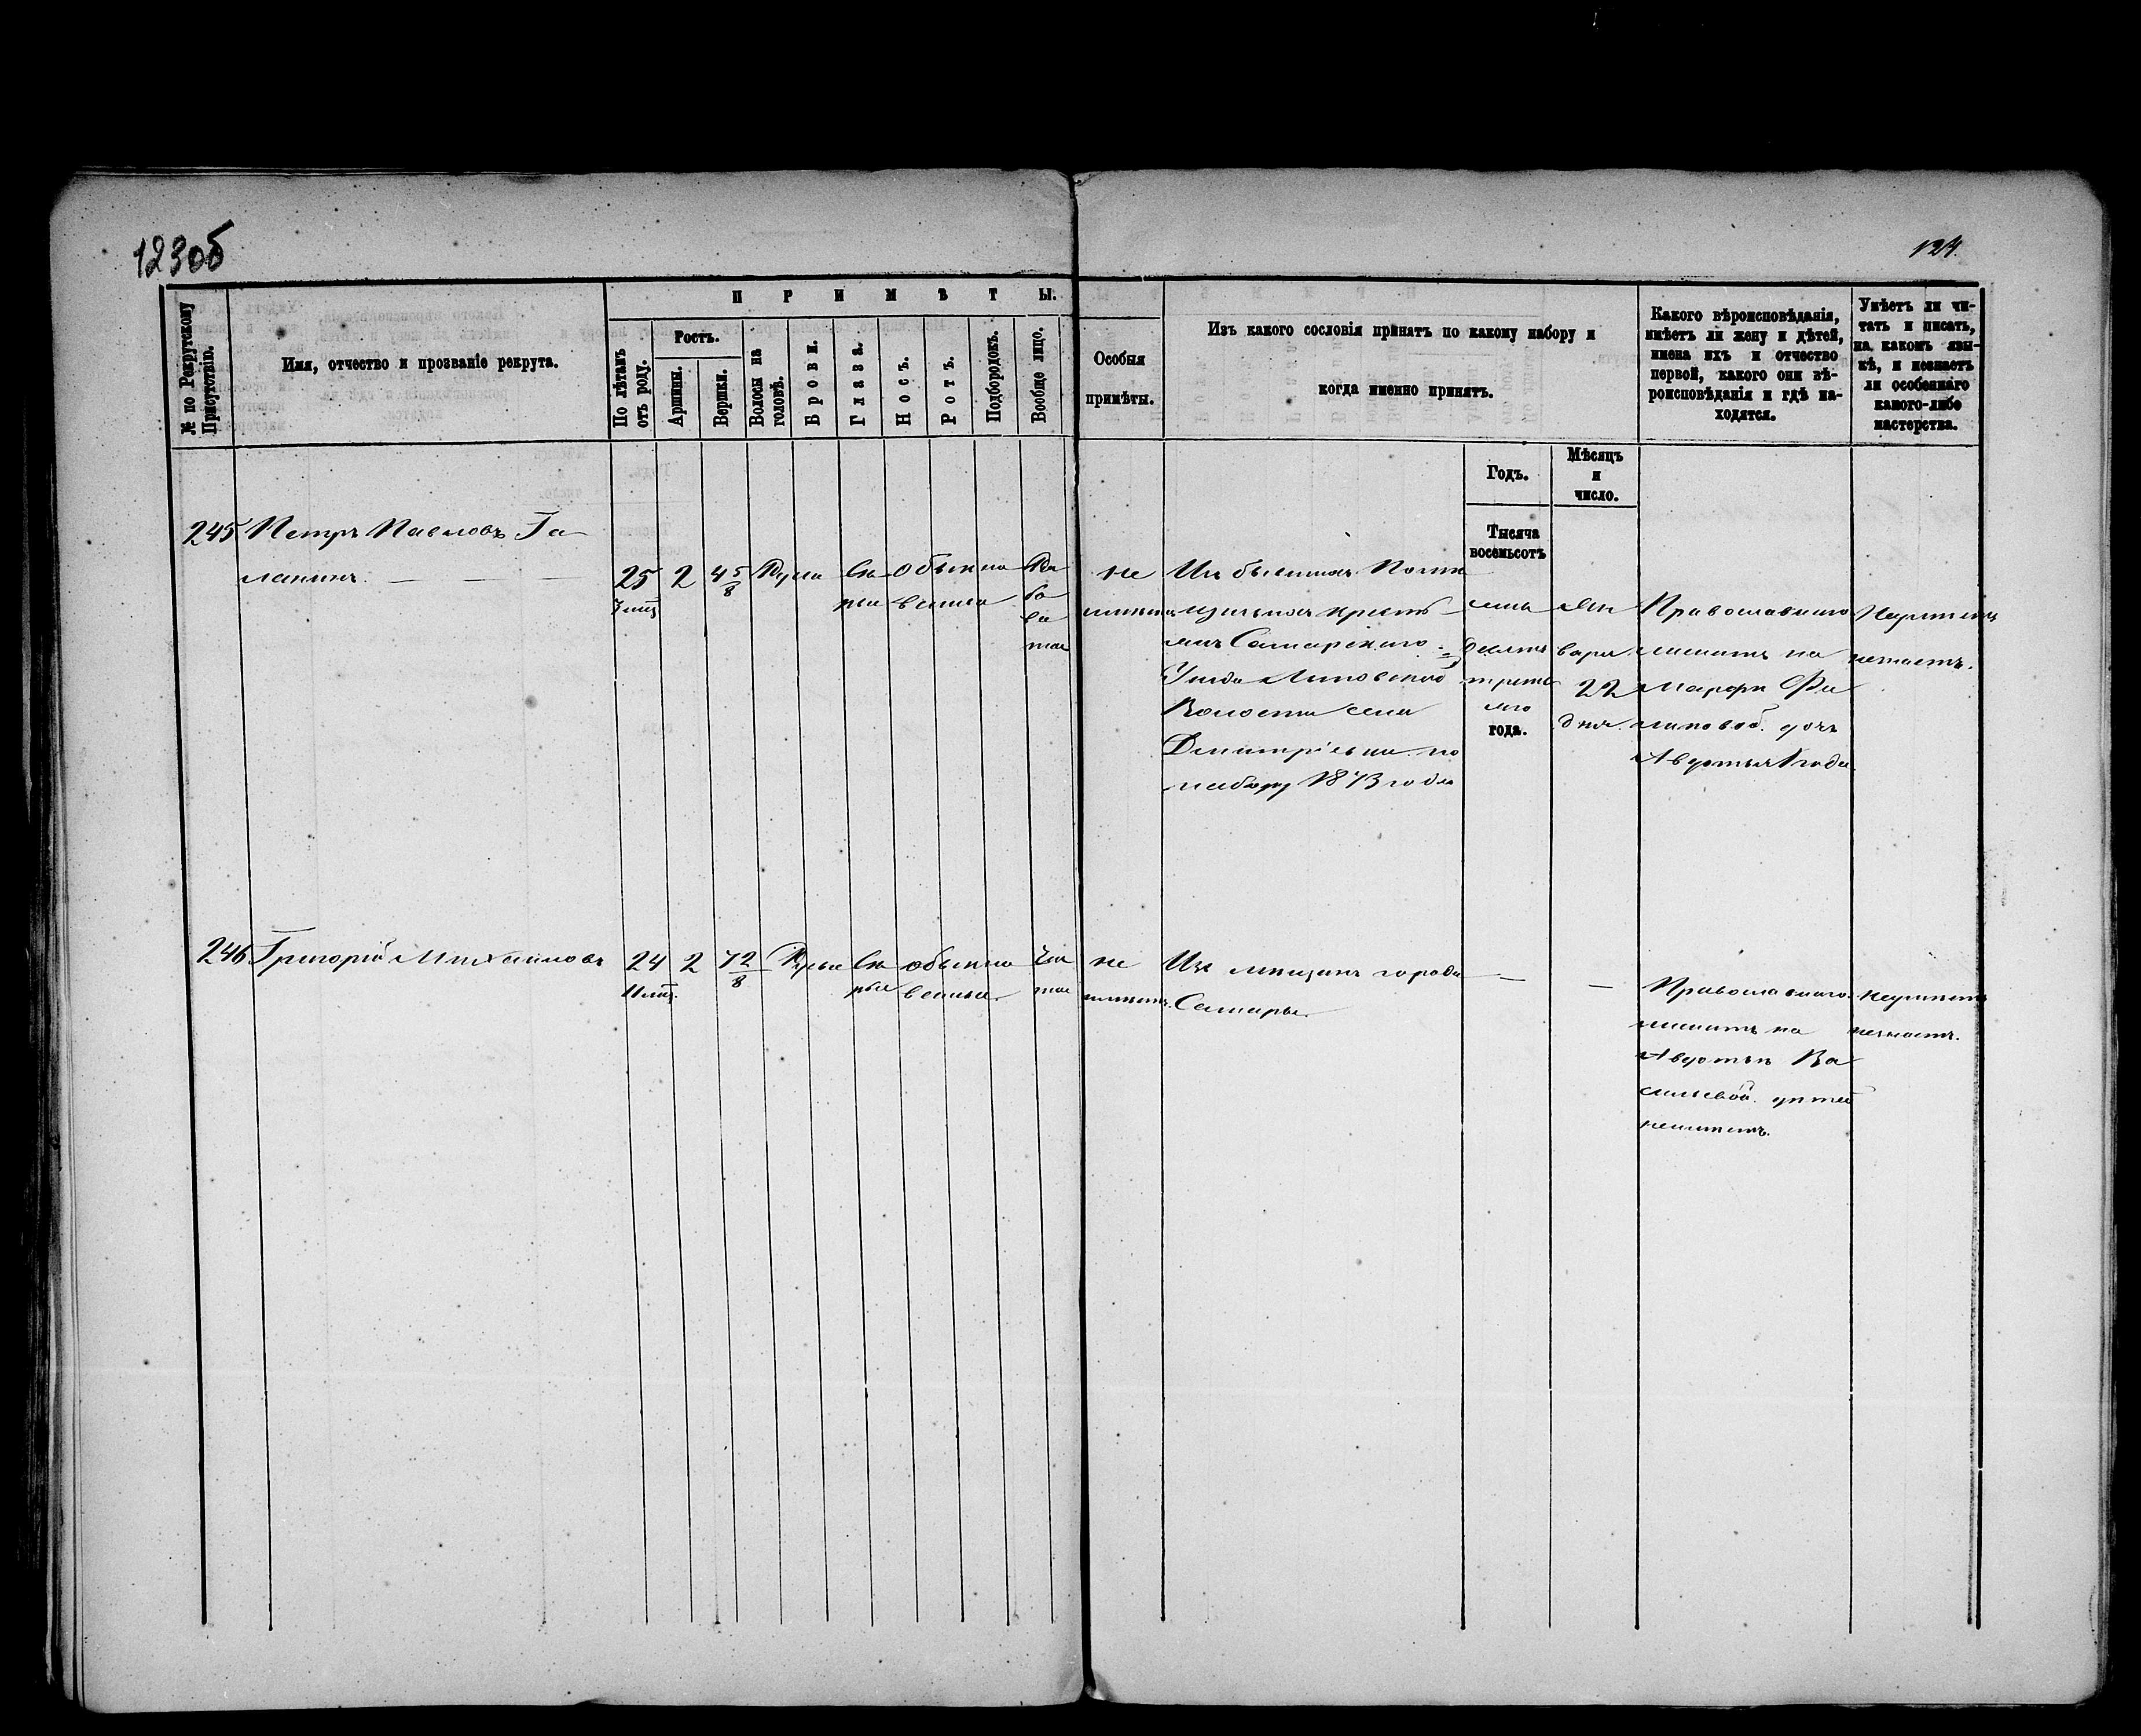 123об
124.
№ по Рекрутскому Присутствію.
Имя, отчество и прозваніе рекрута.
ПРИМѢТЫ.
По лѣтамъ отъ роду.
Ростъ.
Аршины.
Вершки.
Волосы на головѣ.
Брови.
Глаза.
Носъ.
Ротъ.
Подбородокъ.
Вообще лицо.
Особыя
примѣты.
Изъ какого сословія принатъ по какому набору и
когда именно принятъ.
Годъ.
Мѣсяцъ
и
число.
Какого вѣроисповѣданія,
имѣетъ ли жену и дѣтей,
имена ихъ и отчество
первой, какого они вѣ-
роисповѣданія и гдѣ на-
ходятся.
Умѣетъ ли чи-
тать и писать,
на какомъ язы-
кѣ, и незнаетъ
ли особеннаго
какого-либо
мастерства.
Тысяча
восемьсотъ
245 Петръ Павловъ Га
ланинъ
25
2
4 5/8
Русы
Сѣ
рые
Обыкно
венные
Ря
бо
ва
тое
не
имѣетъ
Изъ бывшихъ Помѣ
щичьихъ кресть
янъ Самарскаго
Уѣзда
Волости села
Дмитріевки по
набору 1873 года
семь
десятъ
треть
яго
года.
Ян
варя
22
дня.
Православнаго
женатъ на
Марфѣ Фи
липовой. дочь
Авдотья 1 года.
Неумѣетъ
незнаетъ.
246 Григорій Михайловъ
24
11 мѣц.
2
7 2/8
Русые
Сѣ
рые
обыкно
венные
Чис
тое
не
имѣетъ.
Изъ мѣщанъ города
Самары.
Православнаго
женатъ на
Авдотьѣ Ва
сильевой. дѣтей
неимѣетъ.
неумѣетъ
незнаетъ.